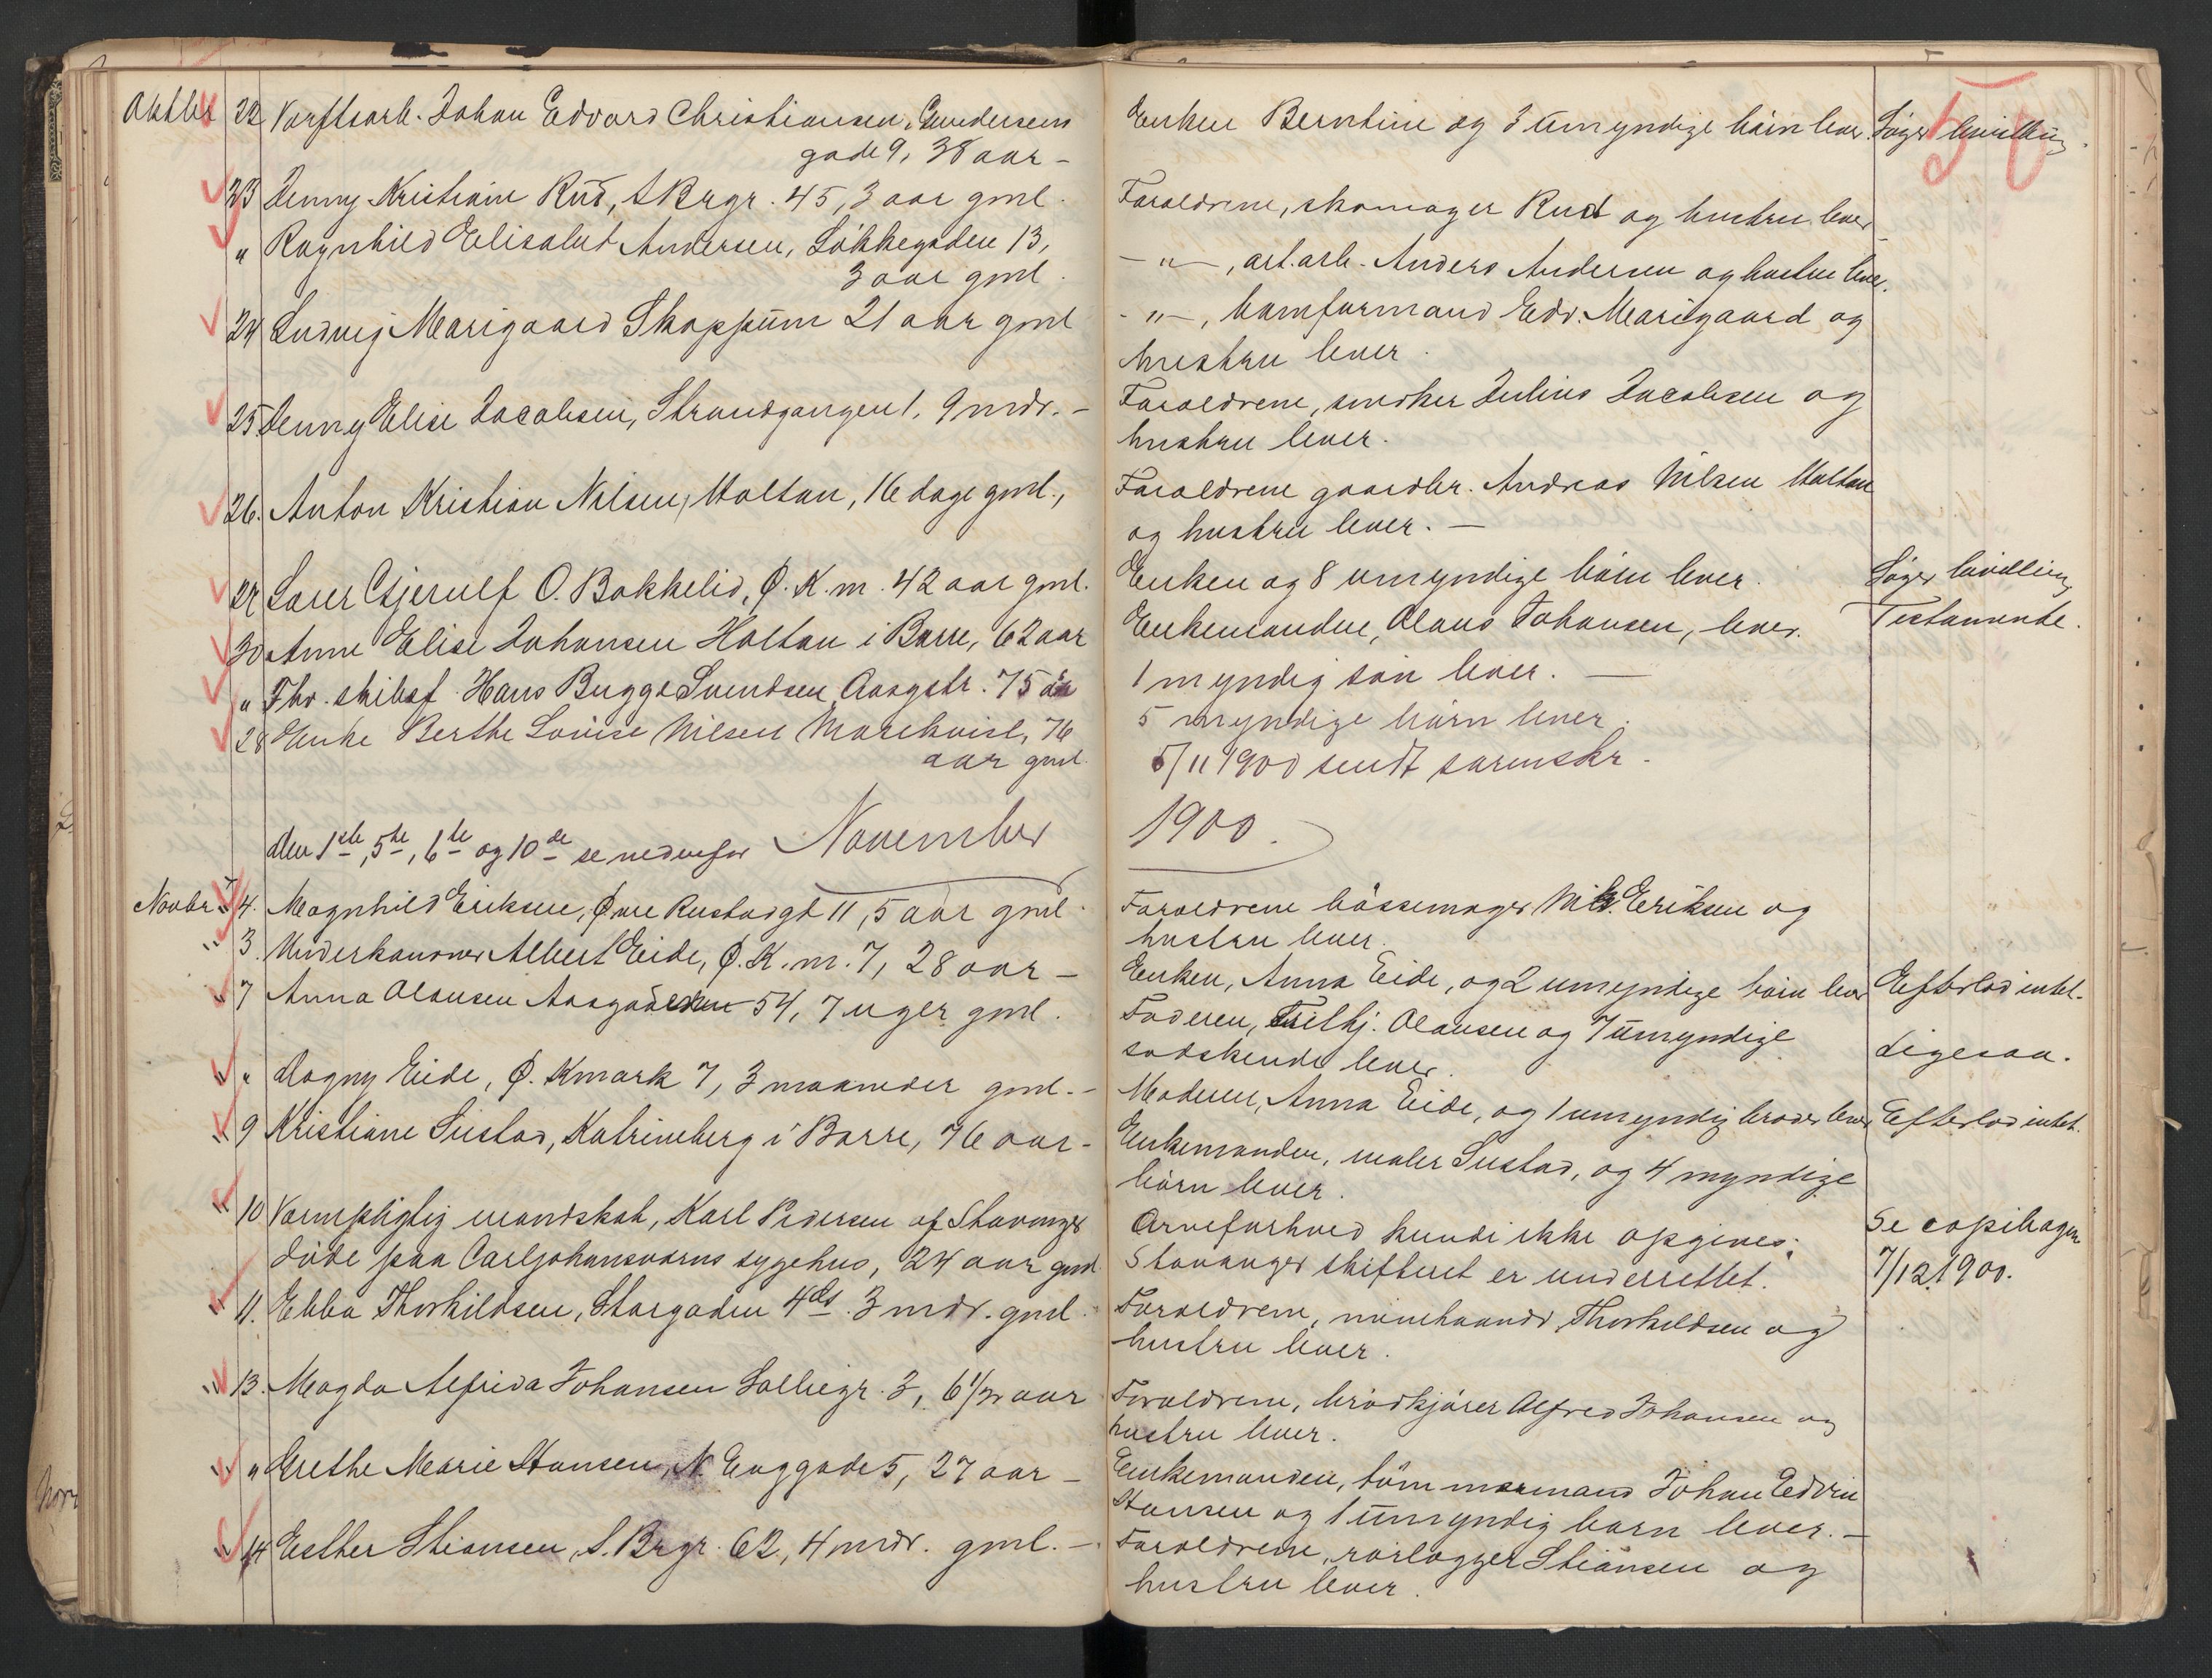 50
Oktbr 22 Værftsarb. Johan Edvard Christiansen, Gundersens
gade 9, 38 aar –
Enken Berntine og 3 umyndige børn lever. Søger bevilling.
23 Jenny Kristiane Rud, S Brgr. 45, 3 aar gml.
Forældrene, skomager Rud og hustru lever
" Ragnhild Elisabet Andersen, Løkkegaden 13,
3 aar gml.
– " –, art. arb. Anders Andersen og hustru lever.
24 Ludvig Marigaard Skoppum 21 aar gml
– " –, banformand Edv. Marigaard og
hustru lever.
25 Jenny Elise Jacobsen, Strandgangen 1, 9 mdr. –
Forældrene, snedker Julius Jacobsen og
hustru lever.
26. Anton Kristian Nilsen, Holtan, 16 dage gml.,
Forældrene gaardbr. Andreas Nilsen Holtan
og hustru lever. –
27 Lærer Gjerulf O. Bakkelid, Ø. K. m. 42 aar gml.
Enken og 8 umyndige børn lever. Søger bevilling
30 Anne Elise Johansen Holtan i Borre, 62 aar
Enkemanden, Olaus Johansen, lever. Testamente.
" Fhv. skibsf. Hans Bugge Svendsen Aasgstr. 75 aar
1 myndig søn lever. –
28 Enke Berthe Lovise Nilsen Mørekvist, 76
aar gml.
5 myndige børn lever.
5/11 1900 sendt sorenskr.
den 1ste, 5te, 6te og 10de se nedenfor November
1900.
Novbr. 4. Magnhild Eriksen, Øvre Rustadgt 11, 5 aar gml.
Forældrene bøssemager Nils. Eriksen og
hustru lever.
" 3. Underkanoner Albert Eide, Ø. K. m. 7, 28 aar –
Enken, Anna Eide, og 2 umyndige børn lever Efterlod intet.
" 7 Anna Olausen Aasgaden 54, 7 uger gml.
Faderen, Thilhj. Olausen og 7 umyndige
sødskende lever.
Ligesaa.
" " Dagny Eide, Ø. Kmark 7, 3 maaneder gml. –
Moderen, Anna Eide, og 1 umyndig broder lever Efterlod intet.
" 9 Kristiane Sustad, Katrineberg i Borre, 76 aar –
Enkemanden, maler Sustad, og 4 myndige
børn lever.
" 10 Værnepligtig mandskab, Karl Pedersen af Stavanger
døde paa Carljohansværns sygehus, 24 aar gml
Arveforhold kunde ikke opgives;
Stavanger skifteret er underrettet.
Se copibogen
7/12 1900.
" 11. Ebba Thorkildsen, Storgaden 4ds. 3 mdr. gml.
Forældrene, minehaandv. Thorkildsen og
hustru lever.
" 13. Magda Alfrida Johansen Solliegr. 3, 6 1/2 aar
Forældrene, brødkjører Alfred Johansen og
hustru lever.
" " Grethe Marie Hansen, N. Enggade 5, 27 aar –
Enkemanden, tømmermand Johan Edvin
Hansen og 1 umyndig barn lever. –
" 14 Esther Stiansen, S. Brgr. 62, 4 mdr. gml. –
Forældrene, rørlægger Stiansen og
hustru lever.